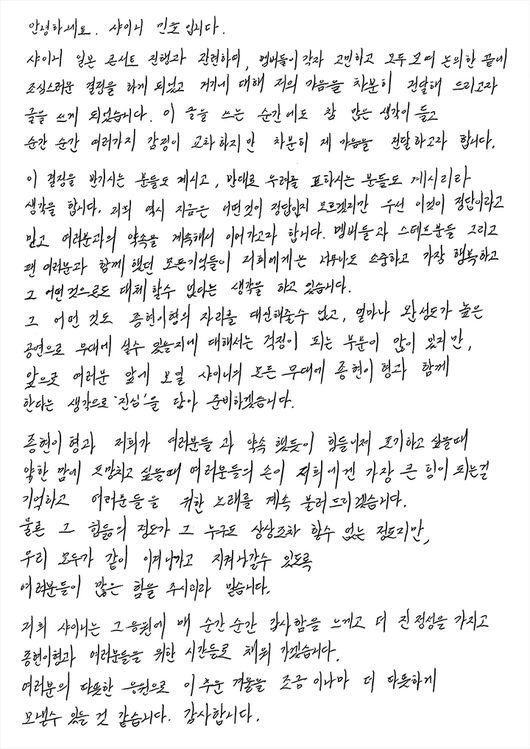 안녕하세요. 샤이니 민호입니다.
샤이니 일본 콘서트 진행과 관련하여, 멤버들이 각자 고민하고 모두 모여 논의한 끝에
조심스러운 결정을 하게 되었고 거기에 대해 저의 마음을 차분히 전달해 드리고자
글을 쓰게 되었습니다. 이 글을 쓰는 순간에도 참 많은 생각이 들고
순간 순간 여러가지 감정이 교차하지만 차분히 제 마음을 전달하고자 합니다.
이 결정을 반기시는 분들도 계시고, 반대로 우려를 표하시는 분들도 계시리라
생각을 합니다. 저희 역시 지금은 어떤것이 정답인지 모르겠지만 우선 이것이 정답이라고
믿고 여러분과의 약속을 계속해서 이어가고자 합니다. 멤버들과 스태프분들 그리고
팬 여러분과 함께 했던 모든기억들이 저희에게는 너무나도 소중하고 가장 행복하고
그 어떤것으로도 대체할수 없다는 생각을 하고 있습니다.
그 어떤 것도 종현이형의 자리를 대신해줄수 없고, 얼마나 완성도가 높은
공연으로 무대에 설수 있을지에 대해서는 걱정이 되는 부분이 많이 있지만,
앞으로 여러분 앞에 보일 샤이니의 모든 무대에 종현이형과 함께
한다는 생각으로 '진심'을 담아 준비하겠습니다.
종현이형과 저희가 여러분들과 약속 했듯이 힘들어서 포기하고 싶을때
약한 맘에 도망치고 싶을때 여러분들의 손이 저희에겐 가장 큰 힘이 되는걸
기억하고 여러분들을 위한 노래를 계속 불러드리겠습니다.
물론 그 힘듦의 정도가 그 누구도 상상조차 할수 없는 정도지만,
우리 모두가 같이 이겨나가고 지켜나갈수 있도록
여러분들이 많은 힘을 주시리라 믿습니다.
저희 샤이니는 그 응원에 매 순간 순간 감사함을 느끼고 더 진정성을 가지고
종현이형과 여러분들을 위한 시간들로 채워 가겠습니다.
여러분의 따뜻한 응원으로 이 추운 겨울을 조금이나마 더 따듯하게
보낼수 있을 것 같습니다. 감사합니다.